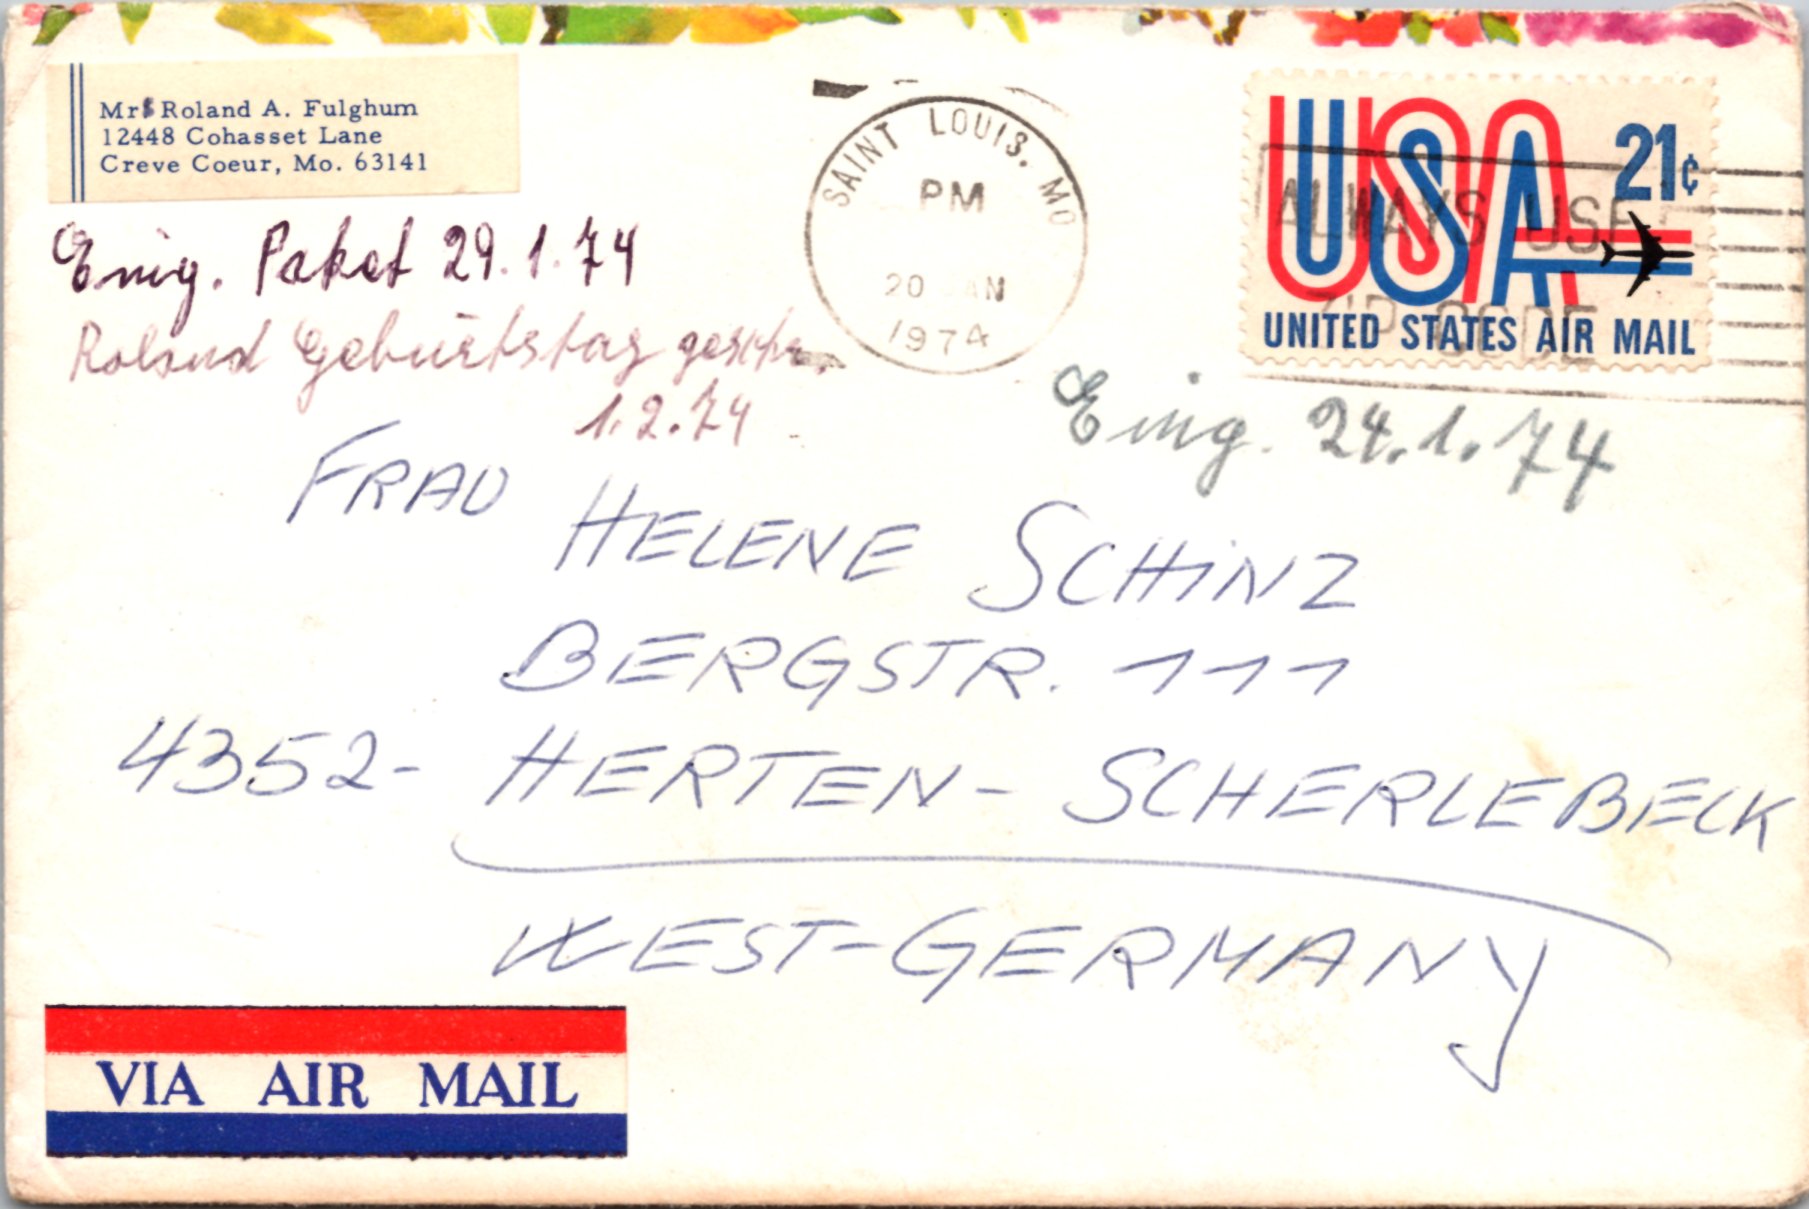 Mrs Roland A. Fulghum
12448 Cohasset Lane
Creve Coeur, Mo. 63141
SAINT LOUIS, MO
PM
20 JAN
1974
USA 21¢
UNITED STATES AIR MAIL
ALWAYS USE
ZIP CODE
Eing. Paket 29.1.74
Roland Geburtstag geschr.
1.2.74
Eing. 24.1.74
FRAU
HELENE SCHiNZ
BERGSTR. 111
4352- HERTEN- SCHERLEBECK
WEST-GERMANY
VIA AIR MAIL